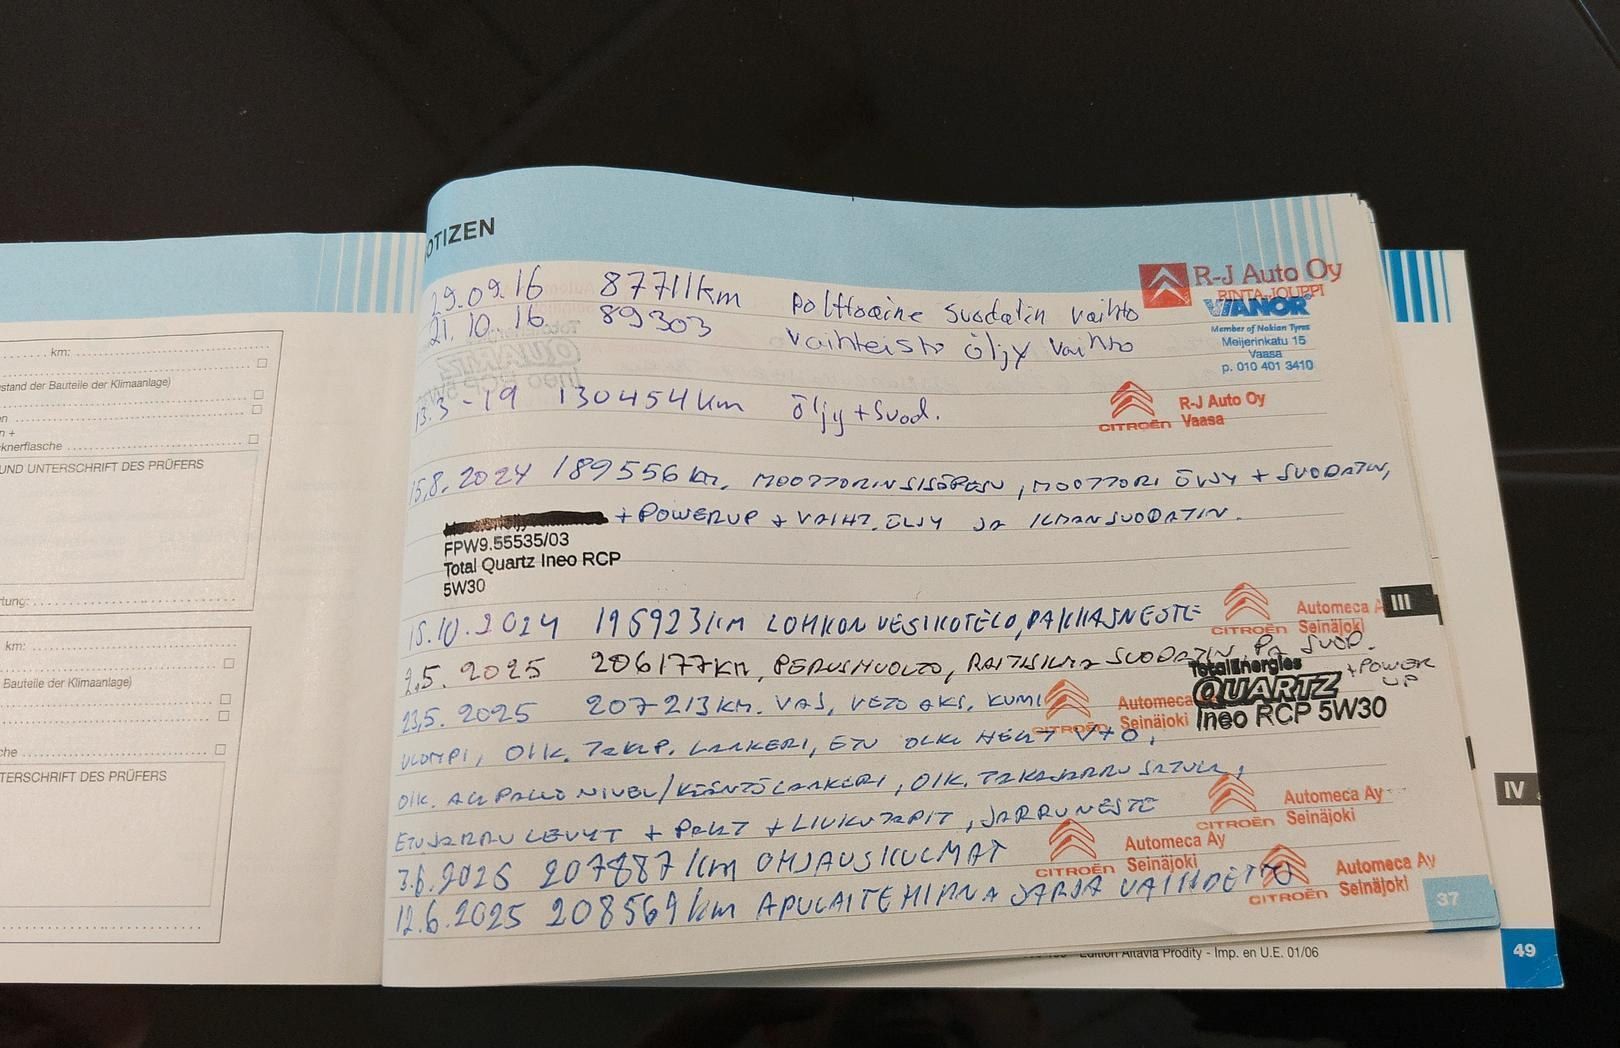 km:
stand der Bauteile der Klimaanlage)
en
n +
cknerflasche
UND UNTERSCHRIFT DES PRÜFERS
tung:
km:
Bauteile der Klimaanlage)
che
TERSCHRIFT DES PRÜFERS
OTIZEN
29.09.16 87711km polttoaine suodatin vaihto
R-J Auto Oy
RINTA-JOUPPI
21.10.16 89303 vaihteisto öljy vaihto
VIANOR
Member of Nokian Tyres
Meijerinkatu 15
Vaasa
p. 010 401 3410
13.3-19 130454km öljy+suod.
R-J Auto Oy
CITROËN Vaasa
15.8.2024 189556km, MOOTTORINSISÄPESU, MOOTTORI ÖLJY + SUODATIN,
+ POWERUP + VAIHT. ÖLJY JA ILMANSUODATIN.
FPW9.55535/03
Total Quartz Ineo RCP
5W30
15.10.2024 195923km LOHKON VESIKOTELO, PAKKASNESTE
Automeca A
CITROËN Seinäjoki
III
2.5.2025 206177km, PERUSHUOLTO, RAITISILMA SUODATIN, PA SUOD.
+POWER
UP
TotalEnergies
QUARTZ
Ineo RCP 5W30
23.5.2025 207213km. VAS, VETO AKS, KUMI
Automeca
CITROËN Seinäjoki
ULOMPI, OIK. LAAKERI, ETU
OIK. ALA PALLONIVEL/KÄÄNTÖLAAKERI, OIK. TAKAJARRU SATULA,
ETUJARRU LEVYT + PALAT + LIUKUTAPIT, JARRUNESTE
Automeca Ay
CITROËN Seinäjoki
3.6.2025 207887km OHJAUSKULMAT
Automeca Ay
CITROËN Seinäjoki
12.6.2025 208569km APULAITEHIHNA SARJA VAIHDETTU
Automeca Ay
CITROËN Seinäjoki
37
IV
Edition Altavia Prodity - Imp. en U.E. 01/06
49